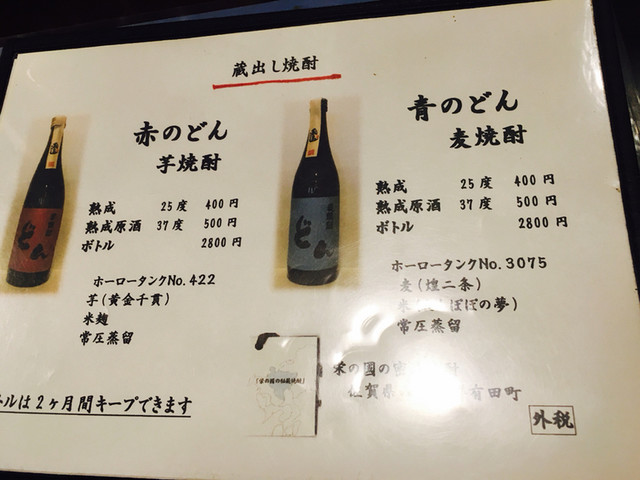 蔵出し焼酎
赤のどん
芋焼酎
熟成 25度 400円
熟成原酒 37度 500円
ボトル 2800円
ホーロータンクNo.422
芋(黄金千貫)
米麹
常圧蒸留
青のどん
麦焼酎
熟成 25度 400円
熟成原酒 37度 500円
ボトル 2800円
ホーロータンクNo.3075
麦(煌二条)
ぼぼの夢)
常圧蒸留
どん
どん
栄の国の
佐賀県 有田町
トルは2ヶ月間キープできます
外税